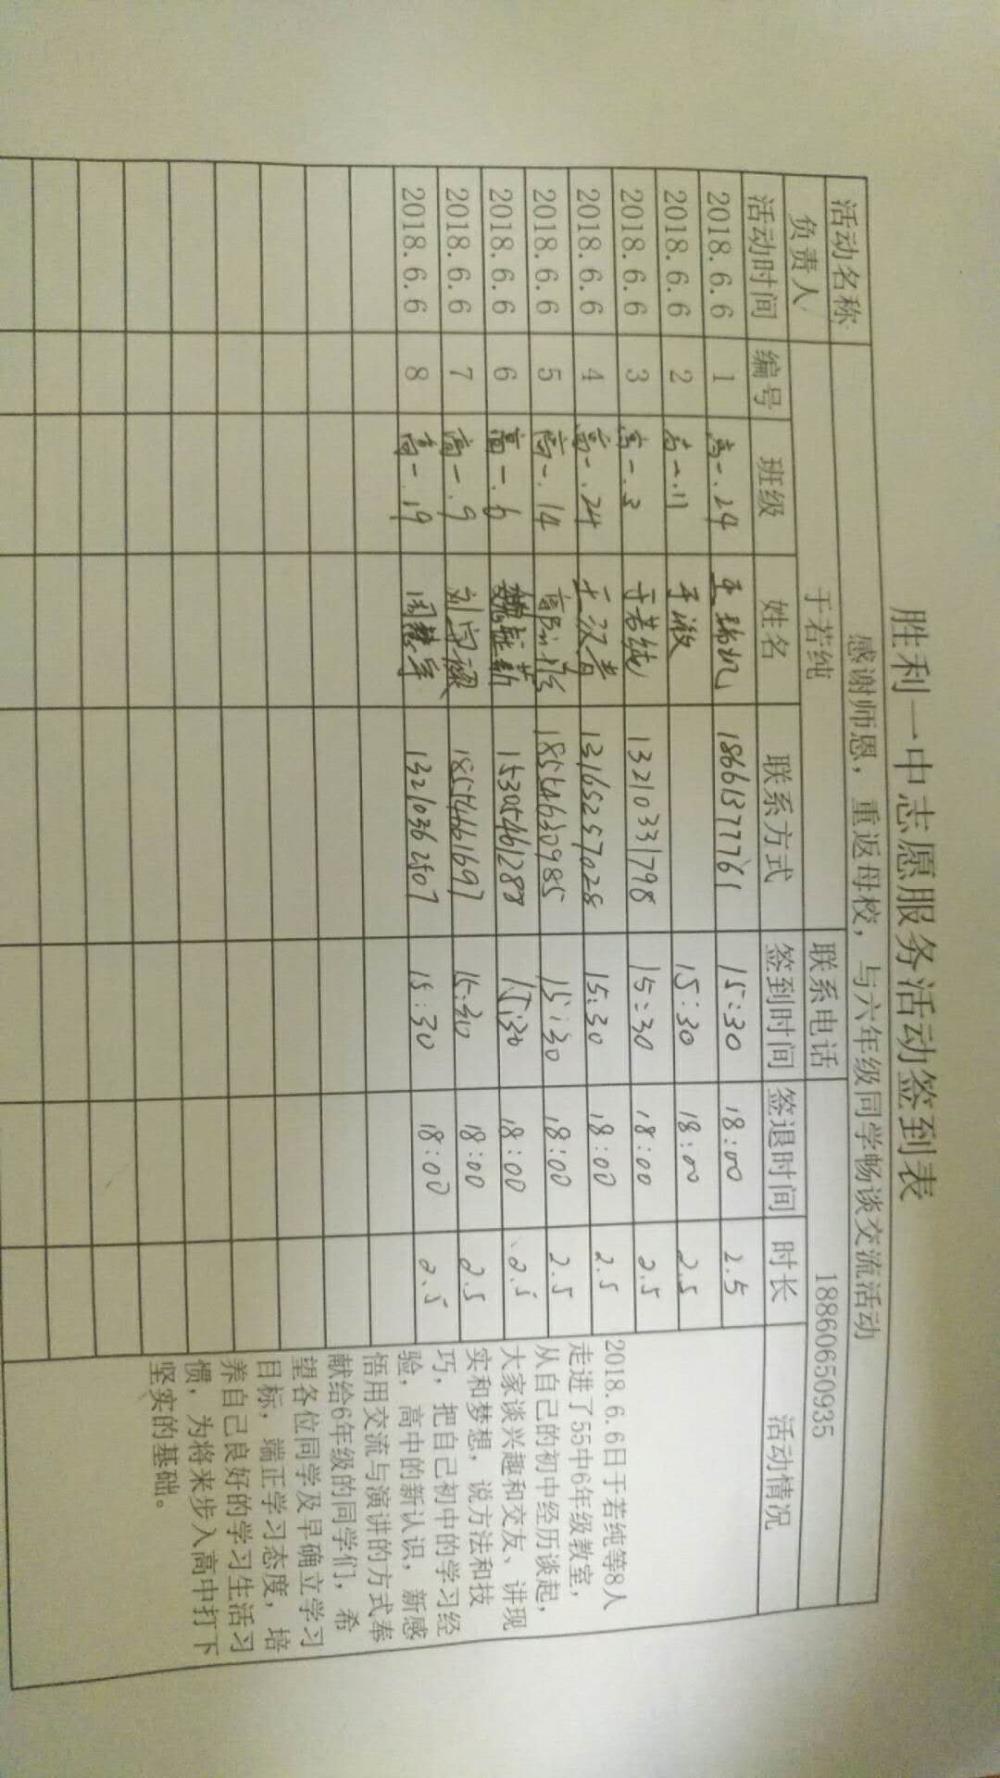 胜利一中志愿服务活动签到表
活动名称 感谢师恩，重返母校，与六年级同学畅谈交流活动
负责人 于若纯 联系电话 18860650935
活动时间 编号 班级 姓名 联系方式 签到时间 签退时间 时长 活动情况
2018.6.6 1 高一.24 18661377761 15:30 18:00 2.5
2018.6.6 2 高一.11 15:30 18:00 2.5
2018.6.6 3 高一.3 于若纯 13210331798 15:30 18:00 2.5
2018.6.6 4 高一.24 13165257028 15:30 18:00 2.5
2018.6.6 5 高一.14 18554630985 15:30 18:00 2.5
2018.6.6 6 高一.6 15305461288 15:30 18:00 2.5
2018.6.6 7 高一.9 18554661697 15:30 18:00 2.5
2018.6.6 8 高一.19 13210362507 15:30 18:00 2.5
2018.6.6日于若纯等8人
走进了55中6年级教室，
从自己的初中经历谈起，
大家谈兴趣和交友、讲现
实和梦想，说方法和技
巧，把自己初中的学习经
验，高中的新认识，新感
悟用交流与演讲的方式奉
献给6年级的同学们，希
望各位同学及早确立学习
目标，端正学习态度，培
养自己良好的学习生活习
惯，为将来步入高中打下
坚实的基础。